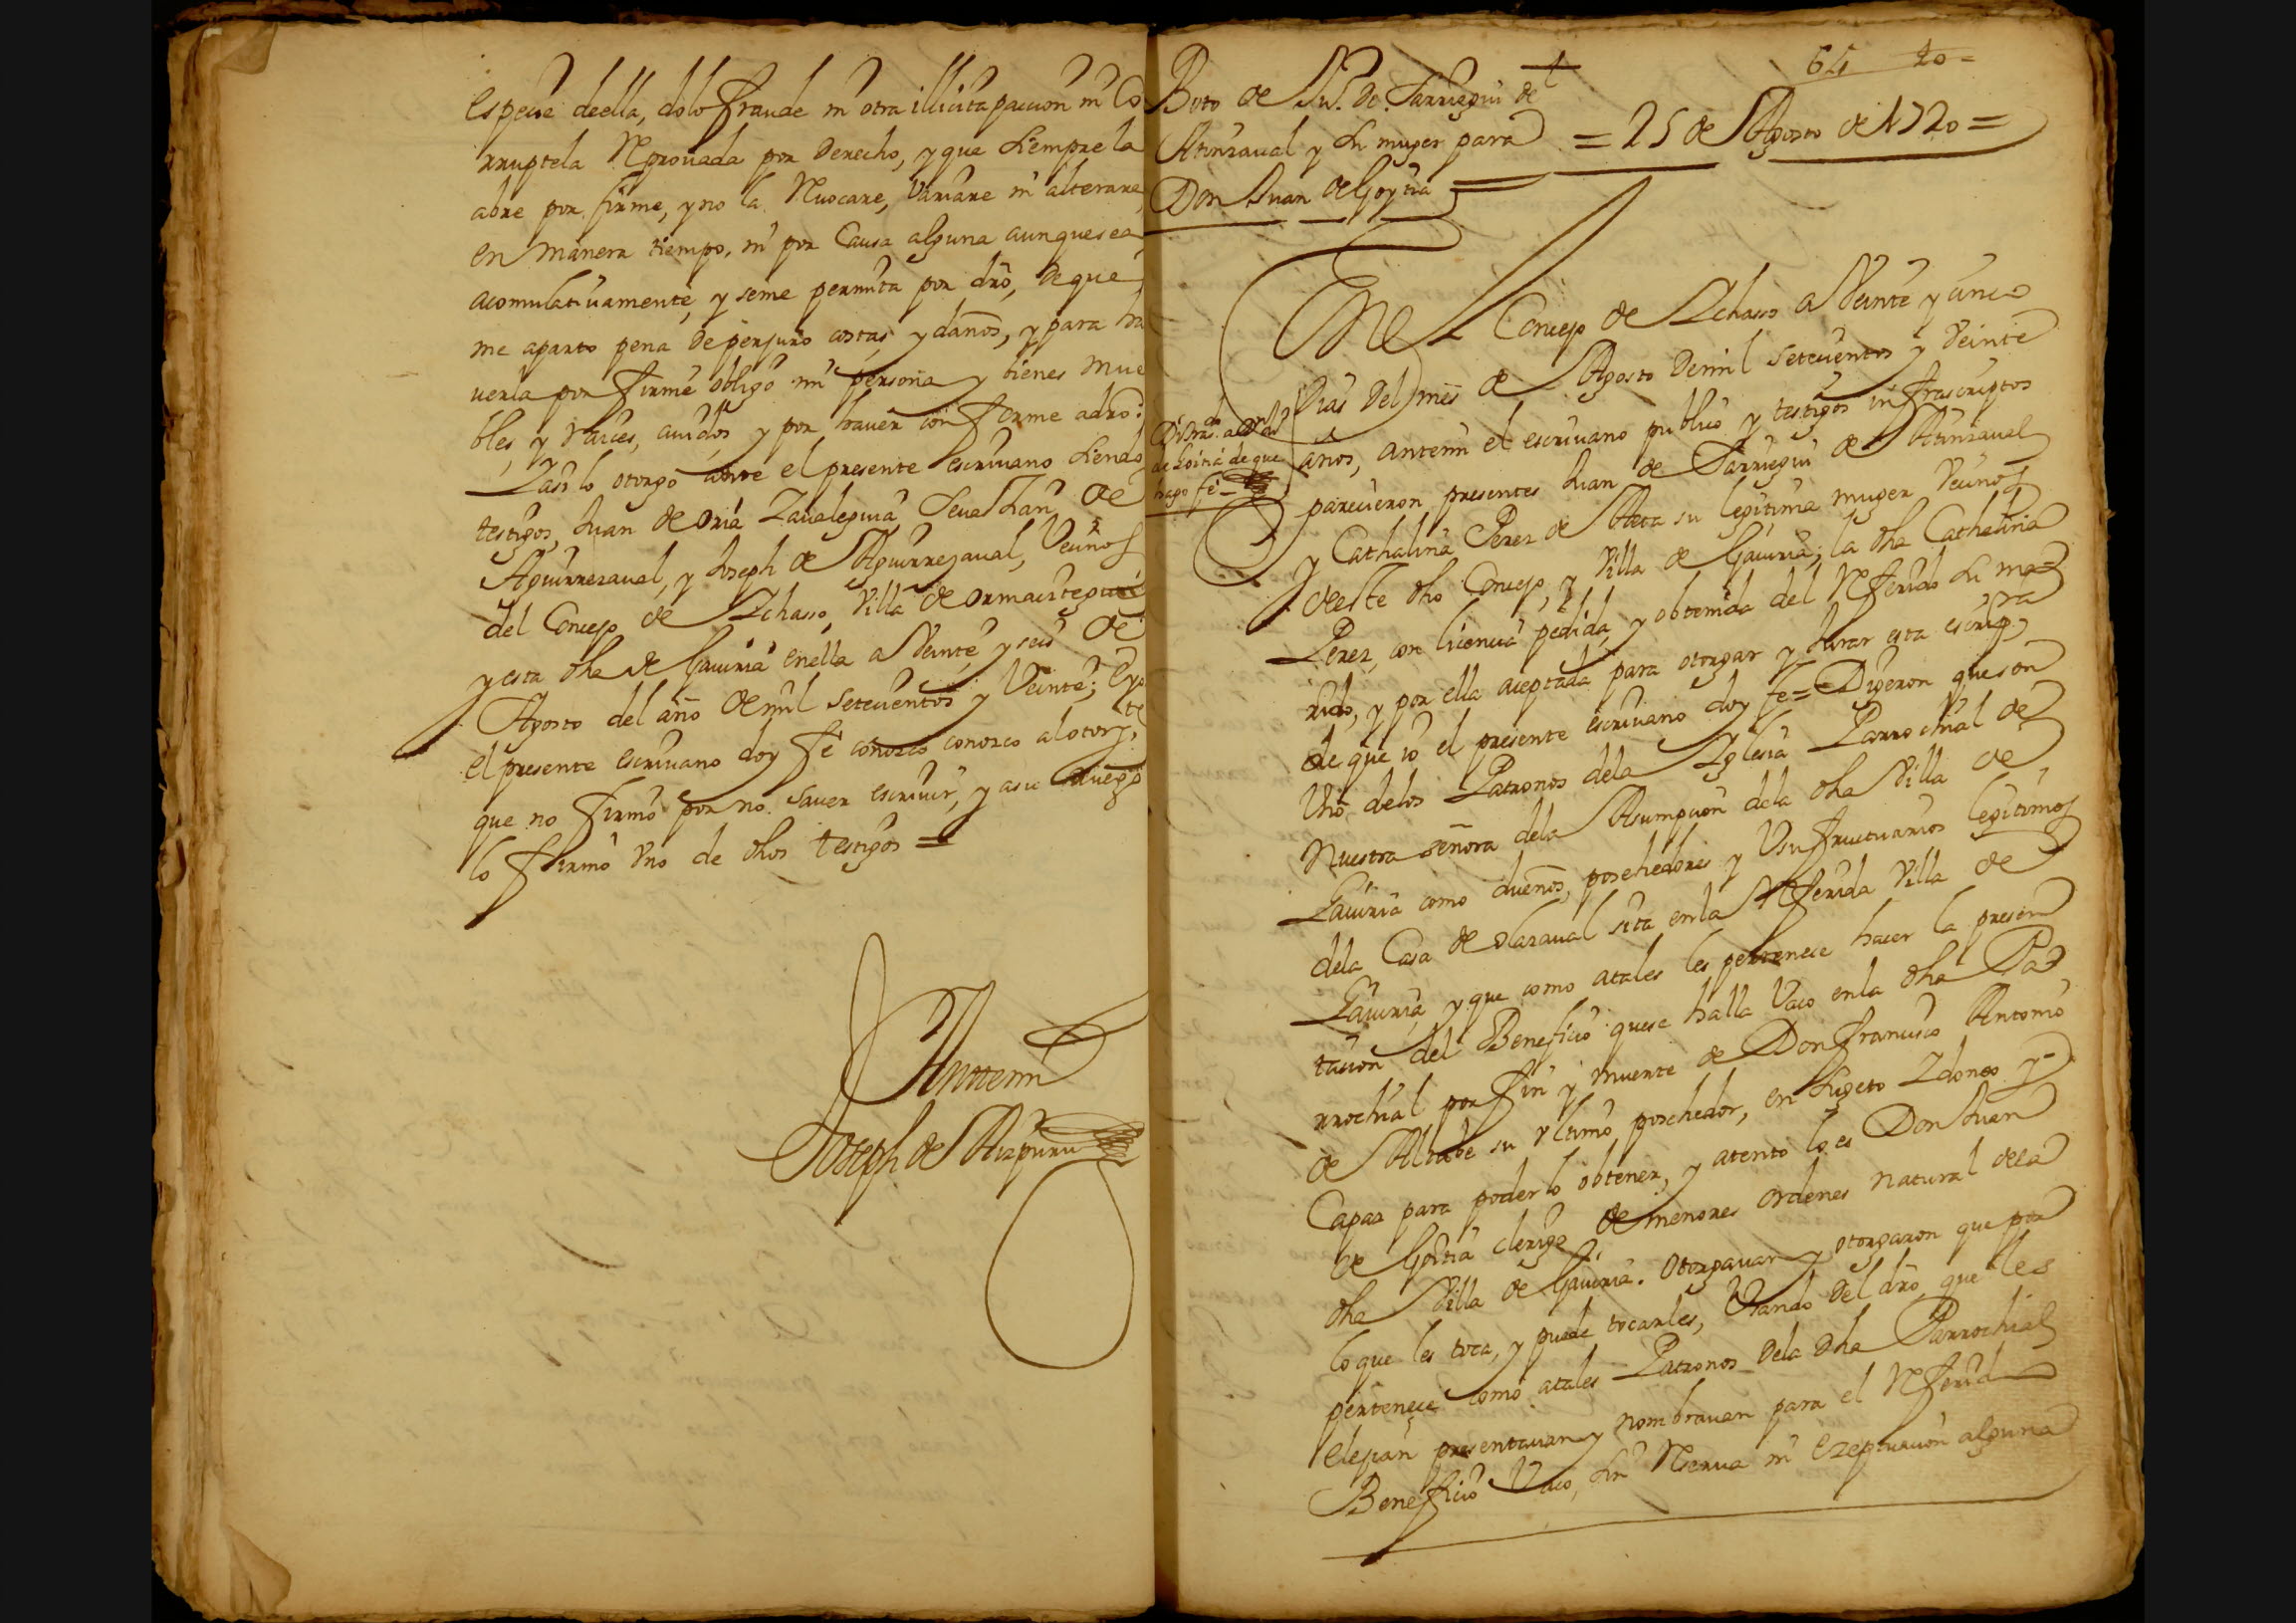 espeçie deella, dolo fraude ni otra illiçita paccion ni co
rruptela Reprouada por derecho, y que siempre la
abre por firme, y no la Reuocare, Variare ni alterare
en manera tiempo, ni por Causa alguna aunquesea
acomulatiuamente, y seme permita por dro, de que
me aparto pena de perjuro costas, y daños, y para ha
uerla por firme obligo mi persona y bienes mue
bles, y raices, auidos, y por hauer conforme adro:
Yasi lo otorgo ante el presente escriuano siendo
testigos, Juan de oria Zaualeguia, Seuastian de
Aguirrezaual, y Joseph de Aguirrezaual, Veçinos
del Conçejo de Ichasso, Villa de ormaiztegui
y esta dha de Gauiria enella a Veinte, y seis de
Agosto del año de mil seteçientos y Veinte; E yo
el presente escriuano doy fe conozco conozco alotorgte
que no firmo por no sauer escriuir, y asu Ruego
lo firmo vno de dhos testigos =
Anttemi
Joseph de Aizpuru
64 20 =
Boto de Jua. de Sarriegui de
Atinzaual y su muger para
Don Juan de Goytia
= 25 de Agosto de 1720 =
En el Conçejo de Ichasso a Veinte y çinco
dias del mes de Agosto demil seteçientos y Veinte
años, antemi el escriuano publico y testigos infrascriptos
pareçieron presentes Juan de Sarriegui de Atinzaual
de Goitia de que
hago fe =
y Cathalina Perez de Aeta su legitima muger Veçinos
deeste dho Conçejo, y Villa de Gauiria; la dha Cathalina
Perez, con liçençia pedida, y obtenida del Referido su ma
rido, y por ella aceptada para otorgar y Jurar esta escripra
de que io el presente escriuano doy fe = Digeron queson
Vno delos Patronos dela Iglesia Parrochial de
Nuestra señora dela Asumpçion dela dha Villa de
Gauiria como dueños, poseheedores y Vsufructuarios legitimos
dela Casa de olazaual sita enla Referida Villa de
Gauiria, y que como atales les perteneçe hacer la presen
taçion del Benefiçio quese halla Vaco enla dha Pa
rrochial por fin y muerte de Don françisco Antonio
de Alzate su vltimo posehedor, en sugeto Idoneo y
Capaz para poderlo obtener, y atento lo es Don Juan
de Goitia clerigo de menores ordenes natural dela
dha Villa de Gauiria. otorgauan y otorgaron que por
loque les toca, y puede tocarles, Vsando del dro que les
perteneçe como atales Patronos dela dha Parrochial
elegian presentauan y nombrauan para el Referido
Benefiçio Vaco, sin Reserua ni Ezeptuaçion alguna